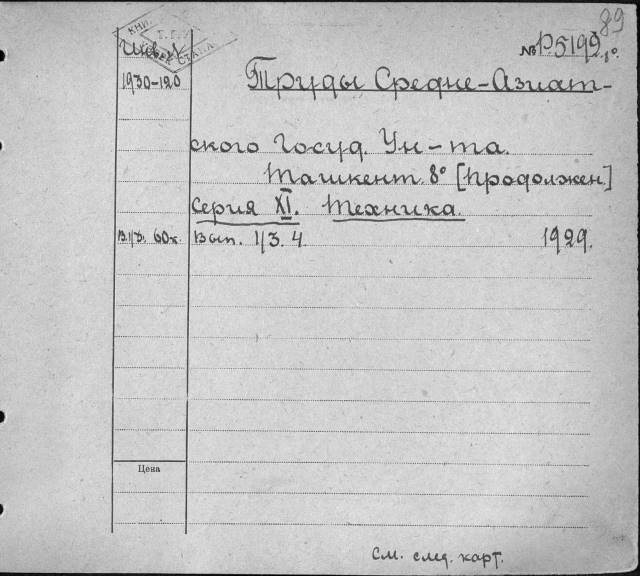 89
КНИ.
Т.Г.У.
Инв. №
№ Р5192 8°.
1930-120
Труды Средне-Азиат-
ского Госуд. Ун-та.
Ташкент. 8° [Продолжен]
Серия XI. Техника.
В.1/3. 60к. Вып. 1/3. 4. 1929.
Цена
См. след. карт.